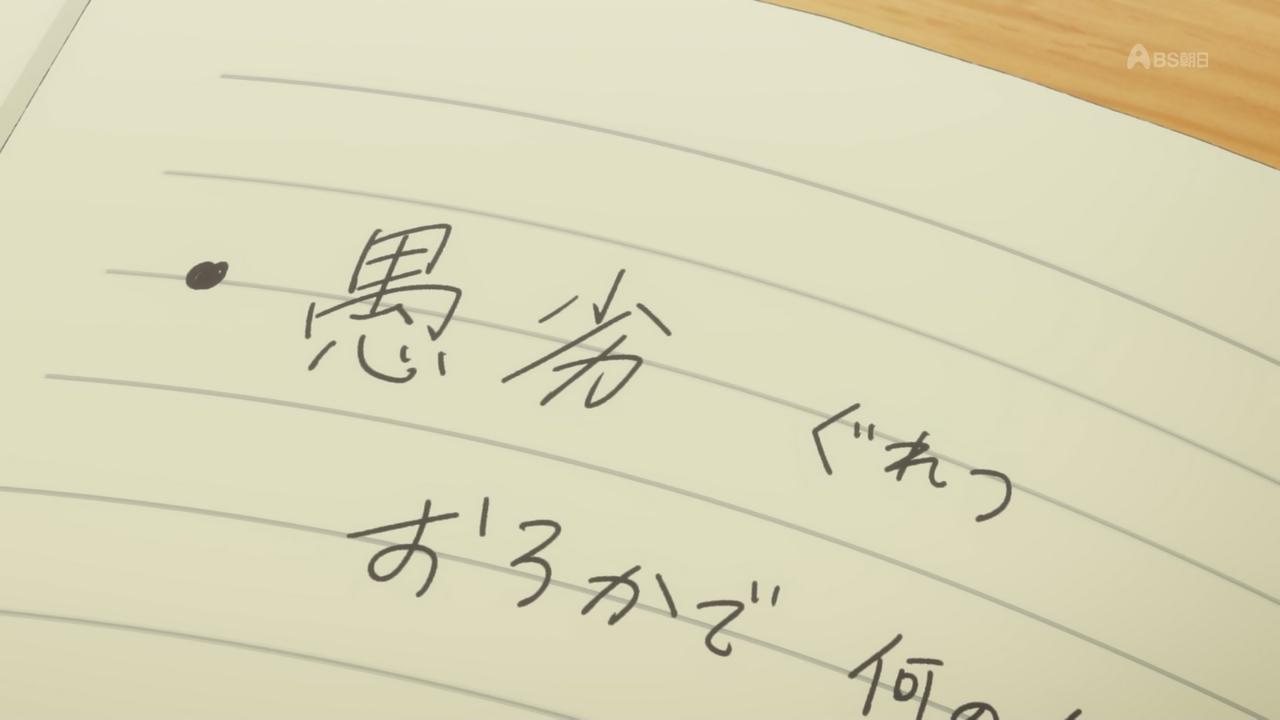 BS朝日
・愚劣 ぐれつ
おろかで 何の